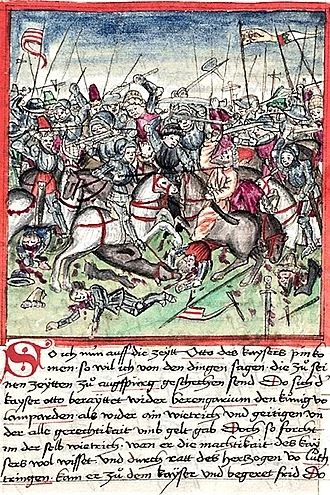 So ich nun auff die zeytt Otto des kaysers pin ko
men so wil ich von den dingen sagen die zu sei
nen zeytten zu augspurg geschehen send Do sich d
kayser otto berayttet wider berengarium den künig vo
lamparden als wider ain wietrich und geitigen vn
der alle gerechtikait umb gelt gab Doch so forcht
im der selb wietrich wan er die machtikait des kay
sers wol wisset und durch ratt des herczogen vo luth
tringen kam er zu dem kayser und begeret frid Do